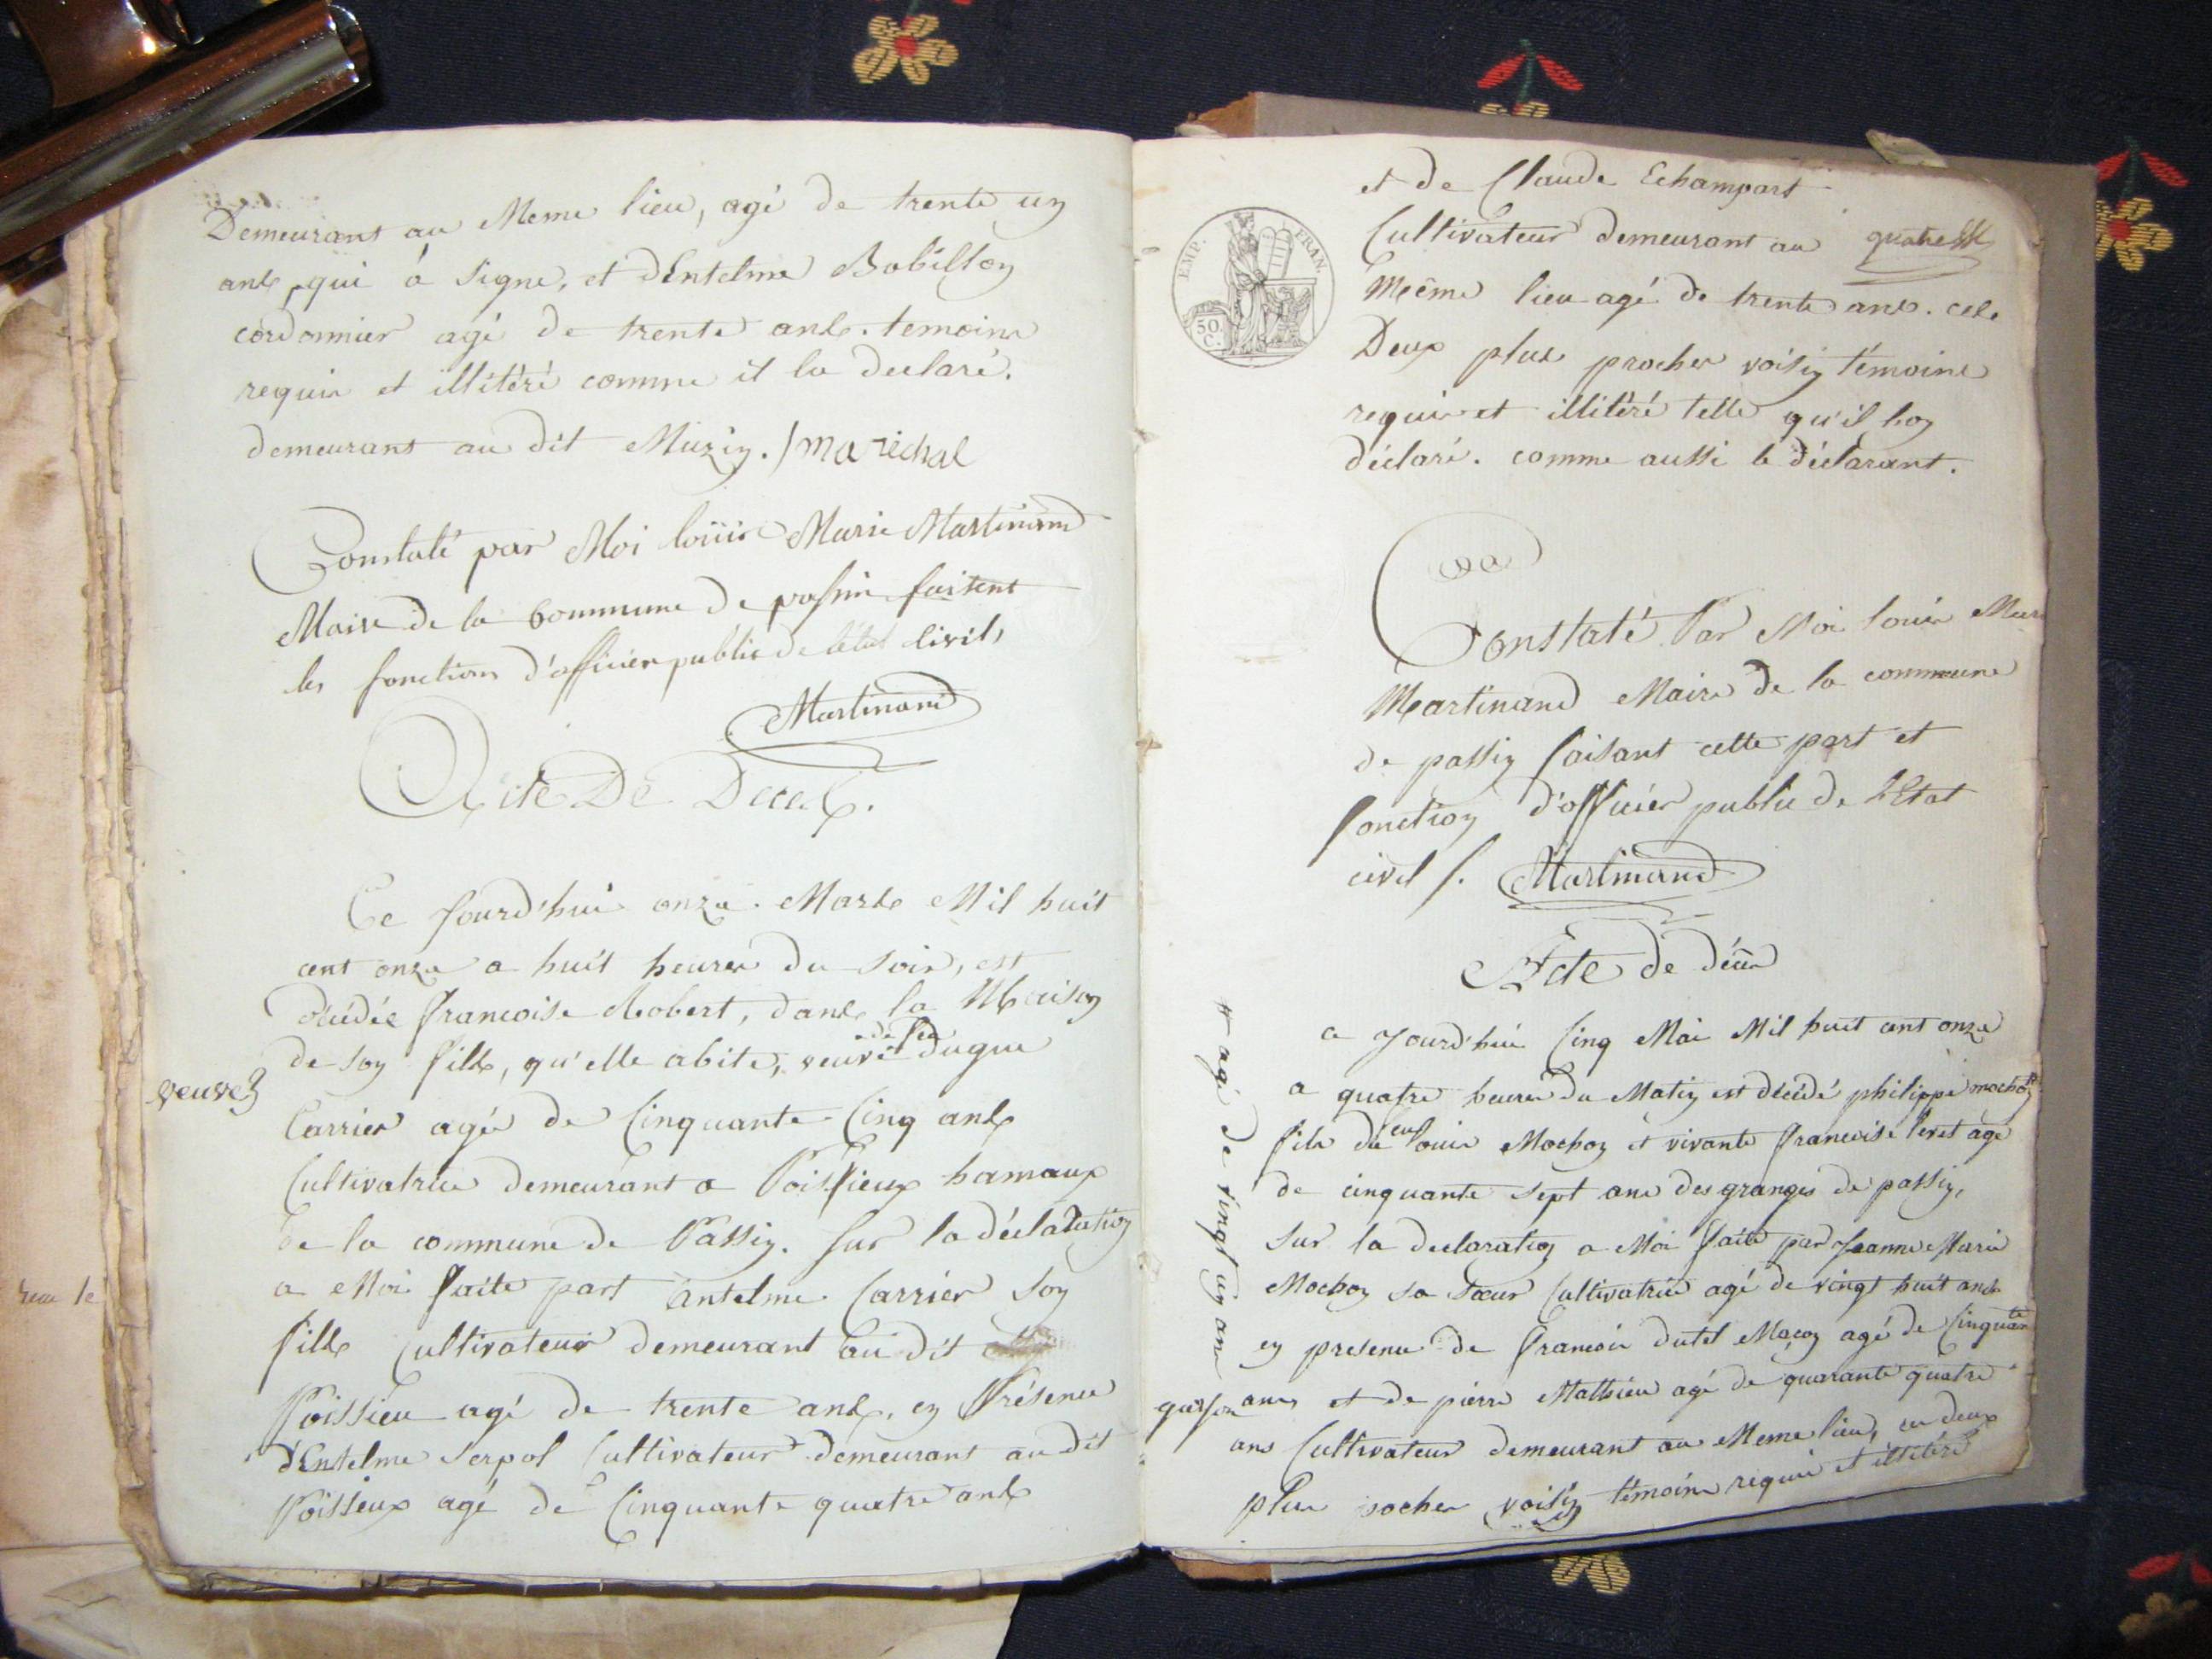 Demeurant au Meme lieu, agé de trente un
ans, qui á Signe, et dEntelme Bobillon
cordonnier agé de trente ans. temoins
requis et illitéré comme il la declaré.
demeurant au dit Muzin. / marechal
Constaté par Moi loüis Marie Martinand
Maire de la Commune de passin faisent
les fonctions d'officier public de létat Civil,
Martinand
Acte De Deces.
Ce Jourd'hui onze Mars Mil huit
cent onze a huit heures du Soir, est
décédée francoise Robert, dans la Maison
de son fils, qu'elle abite, veuve de feu Dugue
veuve
Carrier agée de Cinquante Cinq ans
Cultivatrice Demeurant a Poissieux hamaux
de la commune de Passin. Sur la déclaration
a Moi faite part Antelme Carrier Son
fils Cultivateur demeurant au dit
Poissieu agé de trente ans, en Présence
d'Entelme Serpol Cultivateur demeurant au dit
Poissieux agé de Cinquante quatre ans
EMP. FRAN.
50. C.
et de Claude Echampart
Cultivateur demeurant au
quatre
Même lieu agé de trente ans. ces
Deux plus proches voisin témoins
requis et illitéré telle qu'il lon
déclaré. comme aussi le déclarant.
Constaté Par Moi louis Mari
Martinand Maire de la commune
de passin faisant cette part et
fonction d'officier public de l'Etat
civil /. Martinand
Acte de décès
a Jourd'hui Cinq Mai Mil huit cent onze
a quatre heures du Matin est décédé philippe mochon
fils du feu louis Mochon et vivante francoise levet agé
de cinquante sept ans des granges de passin,
Sur la declaration a Moi faite par Jeanne Marie
Mochon sa Sœur Cultivatrice agé de vingt huit ans
en presence de francois dutel Maçon agé de Cinquante
ans et de pierre Mathieu agé de quarante quatre
ans Cultivateur demeurant au Meme lieu, ces deux
plus procher voisin témoins requis et illitéré
# agé de vingt un ans
garson